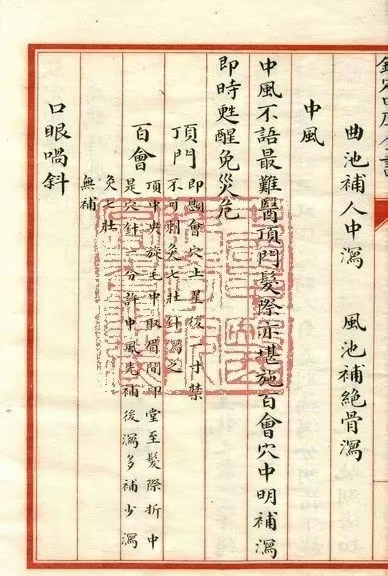 曲池補人中瀉 風池補絕骨瀉
中風
中風不語最難醫頂門髮際亦堪施百會穴中明補瀉
即時甦醒免災危
頂門 即顖會穴上星後一寸禁
不可刺灸七壯針瀉之
百會 頂中央旋毛中取眉間印堂至髮際折中
是穴針二分許中風先補後瀉多補少瀉
灸七壯
無補
口眼喎斜